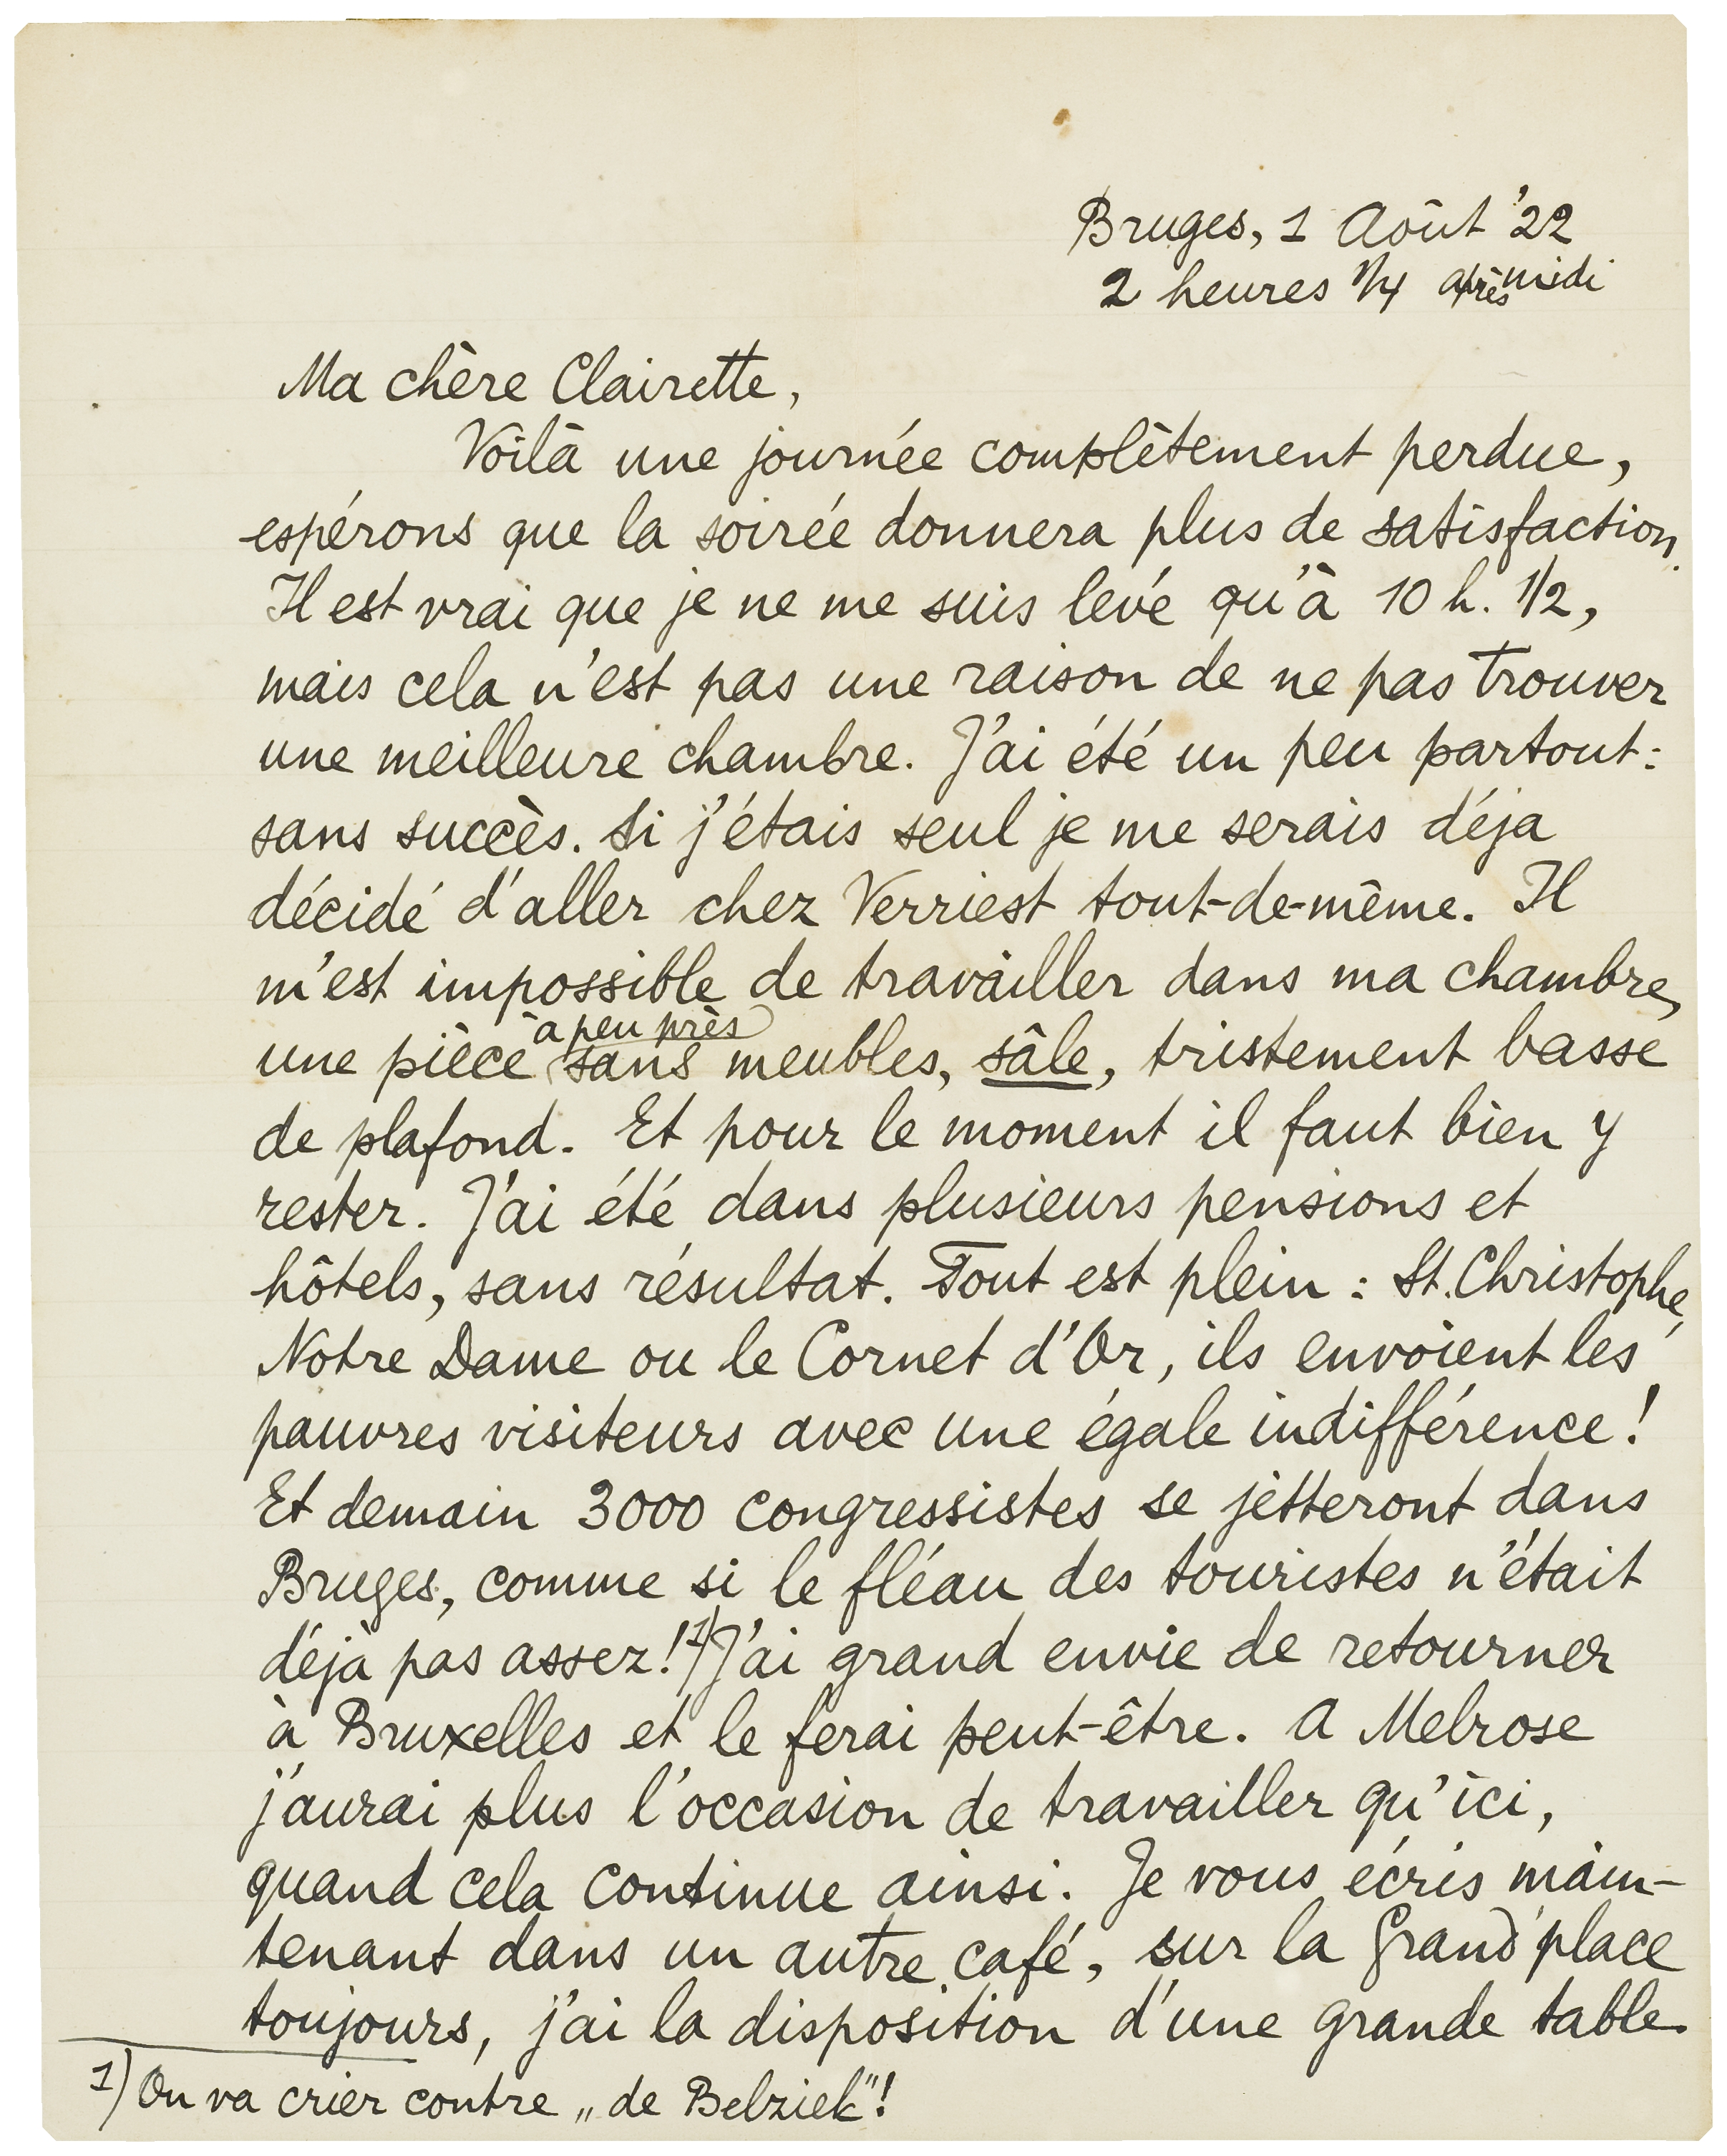 Bruges, 1 Août '22
2 heures 1/4 après midi
Ma chère Clairette,
Voilà une journée complètement perdue,
espérons que la soirée donnera plus de satisfaction.
Il est vrai que je ne me suis levé qu'à 10 h. 1/2,
mais cela n'est pas une raison de ne pas trouver
une meilleure chambre. J'ai été un peu partout:
sans succès. Si j'étais seul je me serais déja
décidé d'aller chez Verriest tout-de-même. Il
m'est impossible de travailler dans ma chambre,
à peu près
une pièce sans meubles, sâle, tristement basse
de plafond. Et pour le moment il faut bien y
rester. J'ai été dans plusieurs pensions et
hôtels, sans résultat. Tout est plein : St. Christophe,
Notre Dame ou le Cornet d'Or, ils envoient les
pauvres visiteurs avec une égale indifférence!
Et demain 3000 congressistes se jetteront dans
Bruges, comme si le fléau des touristes n'était
déjà pas assez! 1) J'ai grand envie de retourner
à Bruxelles et le ferai peut-être. A Melrose
j'aurai plus l'occasion de travailler qu'ici,
quand cela continue ainsi. Je vous écris main-
tenant dans un autre café, sur la Grand'place
toujours, j'ai la disposition d'une grande table.
1) On va crier contre „de Belziek"!